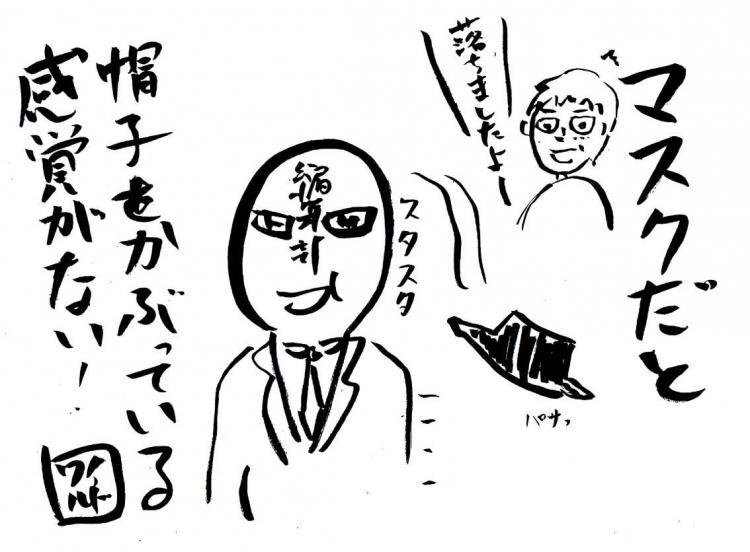 マスクだと
落ちましたよー
スタスタ
パサッ
帽子をかぶっている
感覚がない!
ワイルド